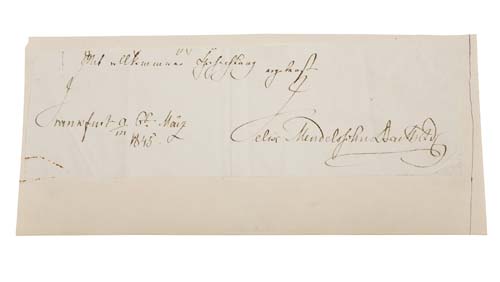 Mit vollkommner Hochachtung ergebenst
Frankfurt a/M März
1845.
Felix Mendelssohn Bartholdy